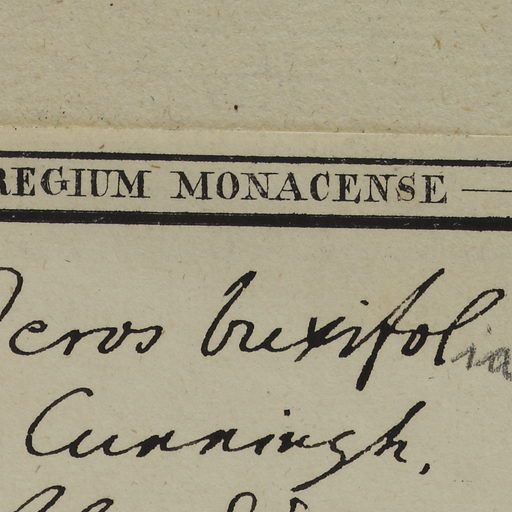 REGIUM MONACENSE
buxifolia
Cunningh.